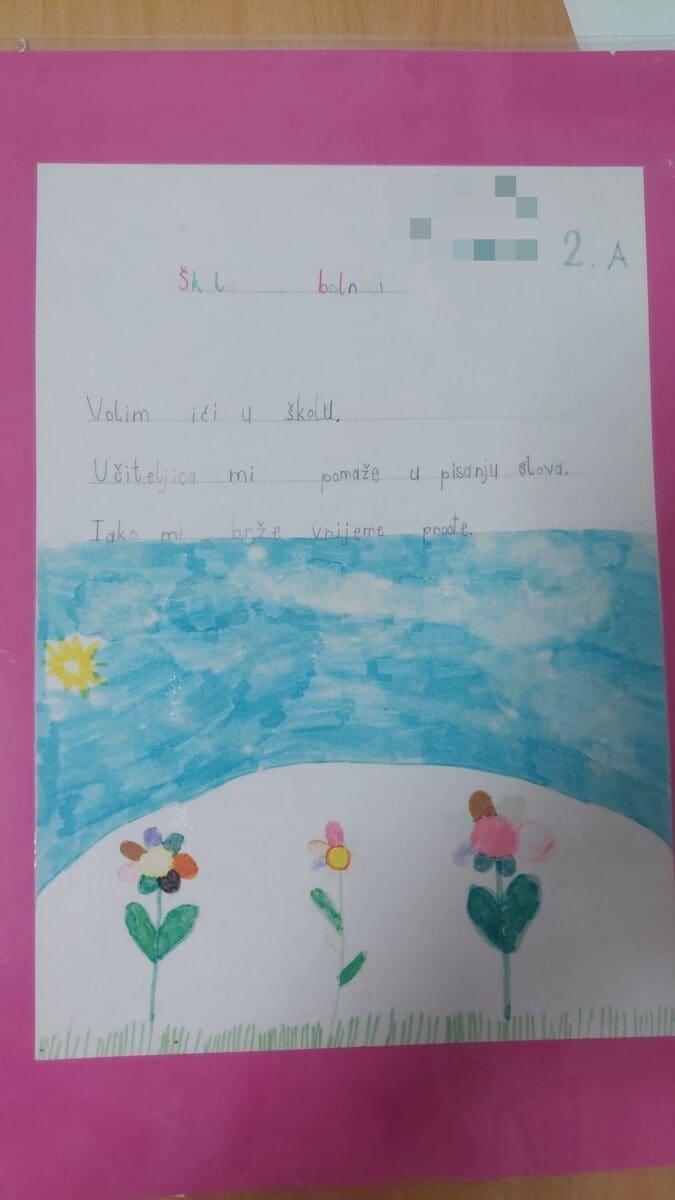 2. A
Škola u bolnici
Volim ići u školu.
Učiteljica mi pomaže u pisanju slova.
Iako mi brže vrijeme prođe.